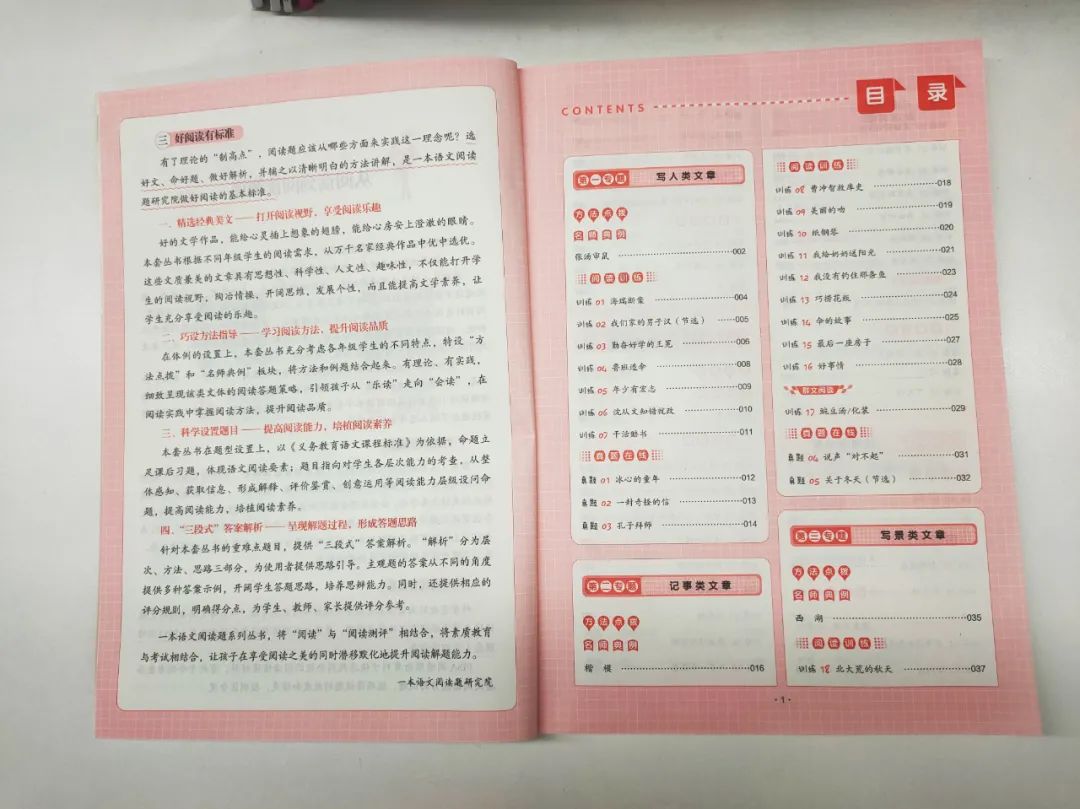 三 好阅读有标准
有了理论的“制高点”，阅读题应该从哪些方面来实践这一理念呢？选
好文、命好题、做好解析，并辅之以清晰明白的方法讲解，是一本语文阅读
题研究院做好阅读的基本标准。
一、精选经典美文——打开阅读视野，享受阅读乐趣
好的文学作品，能给心灵插上想象的翅膀，能给心房安上澄澈的眼睛。
本套丛书根据不同年级学生的阅读需求，从万千名家经典作品中优中选优。
这些文质兼美的文章具有思想性、科学性、人文性、趣味性，不仅能打开学
生的阅读视野，陶冶情操，开阔思维，发展个性，而且能提高文学素养，让
学生充分享受阅读的乐趣。
二、巧设方法指导——学习阅读方法，提升阅读品质
在体例的设置上，本套丛书充分考虑各年级学生的不同特点，特设“方
法点拨”和“名师典例”板块，将方法和例题结合起来。有理论、有实践，
细致呈现该类文体的阅读答题策略，引领孩子从“乐读”走向“会读”，在
阅读实践中掌握阅读方法，提升阅读品质。
三、科学设置题目——提高阅读能力，培植阅读素养
本套丛书在题型设置上，以《义务教育语文课程标准》为依据，命题立
足课后习题，体现语文阅读要素；题目指向对学生各层次能力的考查，从整
体感知、获取信息、形成解释、评价鉴赏、创意运用等阅读能力层级设问命
题，提高阅读能力，培植阅读素养。
四、“三段式”答案解析——呈现解题过程，形成答题思路
针对本套丛书的重难点题目，提供“三段式”答案解析。“解析”分为层
次、方法、思路三部分，为使用者提供思路引导。主观题的答案从不同的角度
提供多种答案示例，开阔学生答题思路，培养思辨能力。同时，还提供相应的
评分规则，明确得分点，为学生、教师、家长提供评分参考。
一本语文阅读题系列丛书，将“阅读”与“阅读测评”相结合，将素质教育
与考试相结合，让孩子在享受阅读之美的同时潜移默化地提升阅读解题能力。
一本语文阅读题研究院
CONTENTS 目录
第一专题 写人类文章
方法点拨
名师典例
张汤审鼠 002
阅读训练
训练 01 海瑞断案 004
训练 02 我们家的男子汉（节选） 005
训练 03 勤奋好学的王冕 006
训练 04 鲁班造伞 008
训练 05 年少有宏志 009
训练 06 沈从文知错就改 010
训练 07 干活励书 011
真题在线
真题 01 冰心的童年 012
真题 02 一封奇怪的信 013
真题 03 孔子拜师 014
第二专题 记事类文章
方法点拨
名师典例
稽模 016
阅读训练
训练 08 曹冲智救库吏 018
训练 09 美丽的吻 019
训练 10 纸钢琴 020
训练 11 我给奶奶送阳光 021
训练 12 我没有钓住那条鱼 023
训练 13 巧捞花瓶 024
训练 14 伞的故事 025
训练 15 最后一座房子 027
训练 16 好事情 028
群文阅读
训练 17 豌豆汤/化装 029
真题在线
真题 04 说声“对不起” 031
真题 05 关于冬天（节选） 032
第三专题 写景类文章
方法点拨
名师典例
西湖 035
阅读训练
训练 18 北大荒的秋天 037
·1·